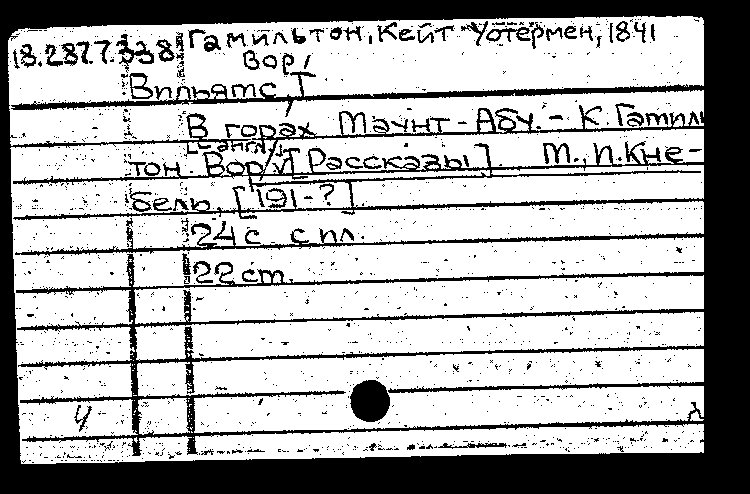 18.287.7.338 Гамильтон, Кейт Уотермен, 1841
Вор,
Вильямс, Т
В горах Маунт-Абу. - К. Гамиль
с англ.
тон. Вор/ [Рассказы]. М., И. Кне-
бель, [191-?]
24 с. с ил.
22 ст.
4